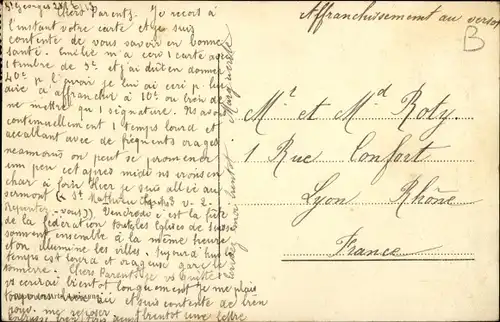 St Georges
Chers Parents. Je reçois à
l'instant votre carte et je suis
contente de vous savoir en bonne
santé. Emilie m'a 1 carte avec
timbre de 5c et j'ai dû en donner
40c p. l'avoir je lui ai p. lui
dire d'affranchir à 10c ou bien de
ne mettre qu'1 signature. Ns avons
continuellement 1 temps lourd et
accablant avec de fréquents orages
néanmoins on peut se promener
un peu cet après midi ns irons en
char à Hier je suis allée au
sermont (St Mathieu Chap 3 v. 2.
Repentez-vous)). Vendredi c'est la fête
de la fédération toutes les Eglises de Suisse
sonnent ensemble à la même heure
et on illumine les villes. Aujourd'hui
temps est lourd et orageux gare le
tonnerre. Chers Parents
bientôt longuement Je me plais
toujours et suis contente de bien
bientôt une lettre
Marguerite
Affranchissement au verso
B
Mr et Md Roty
1 Rue Confort
Lyon Rhône
France